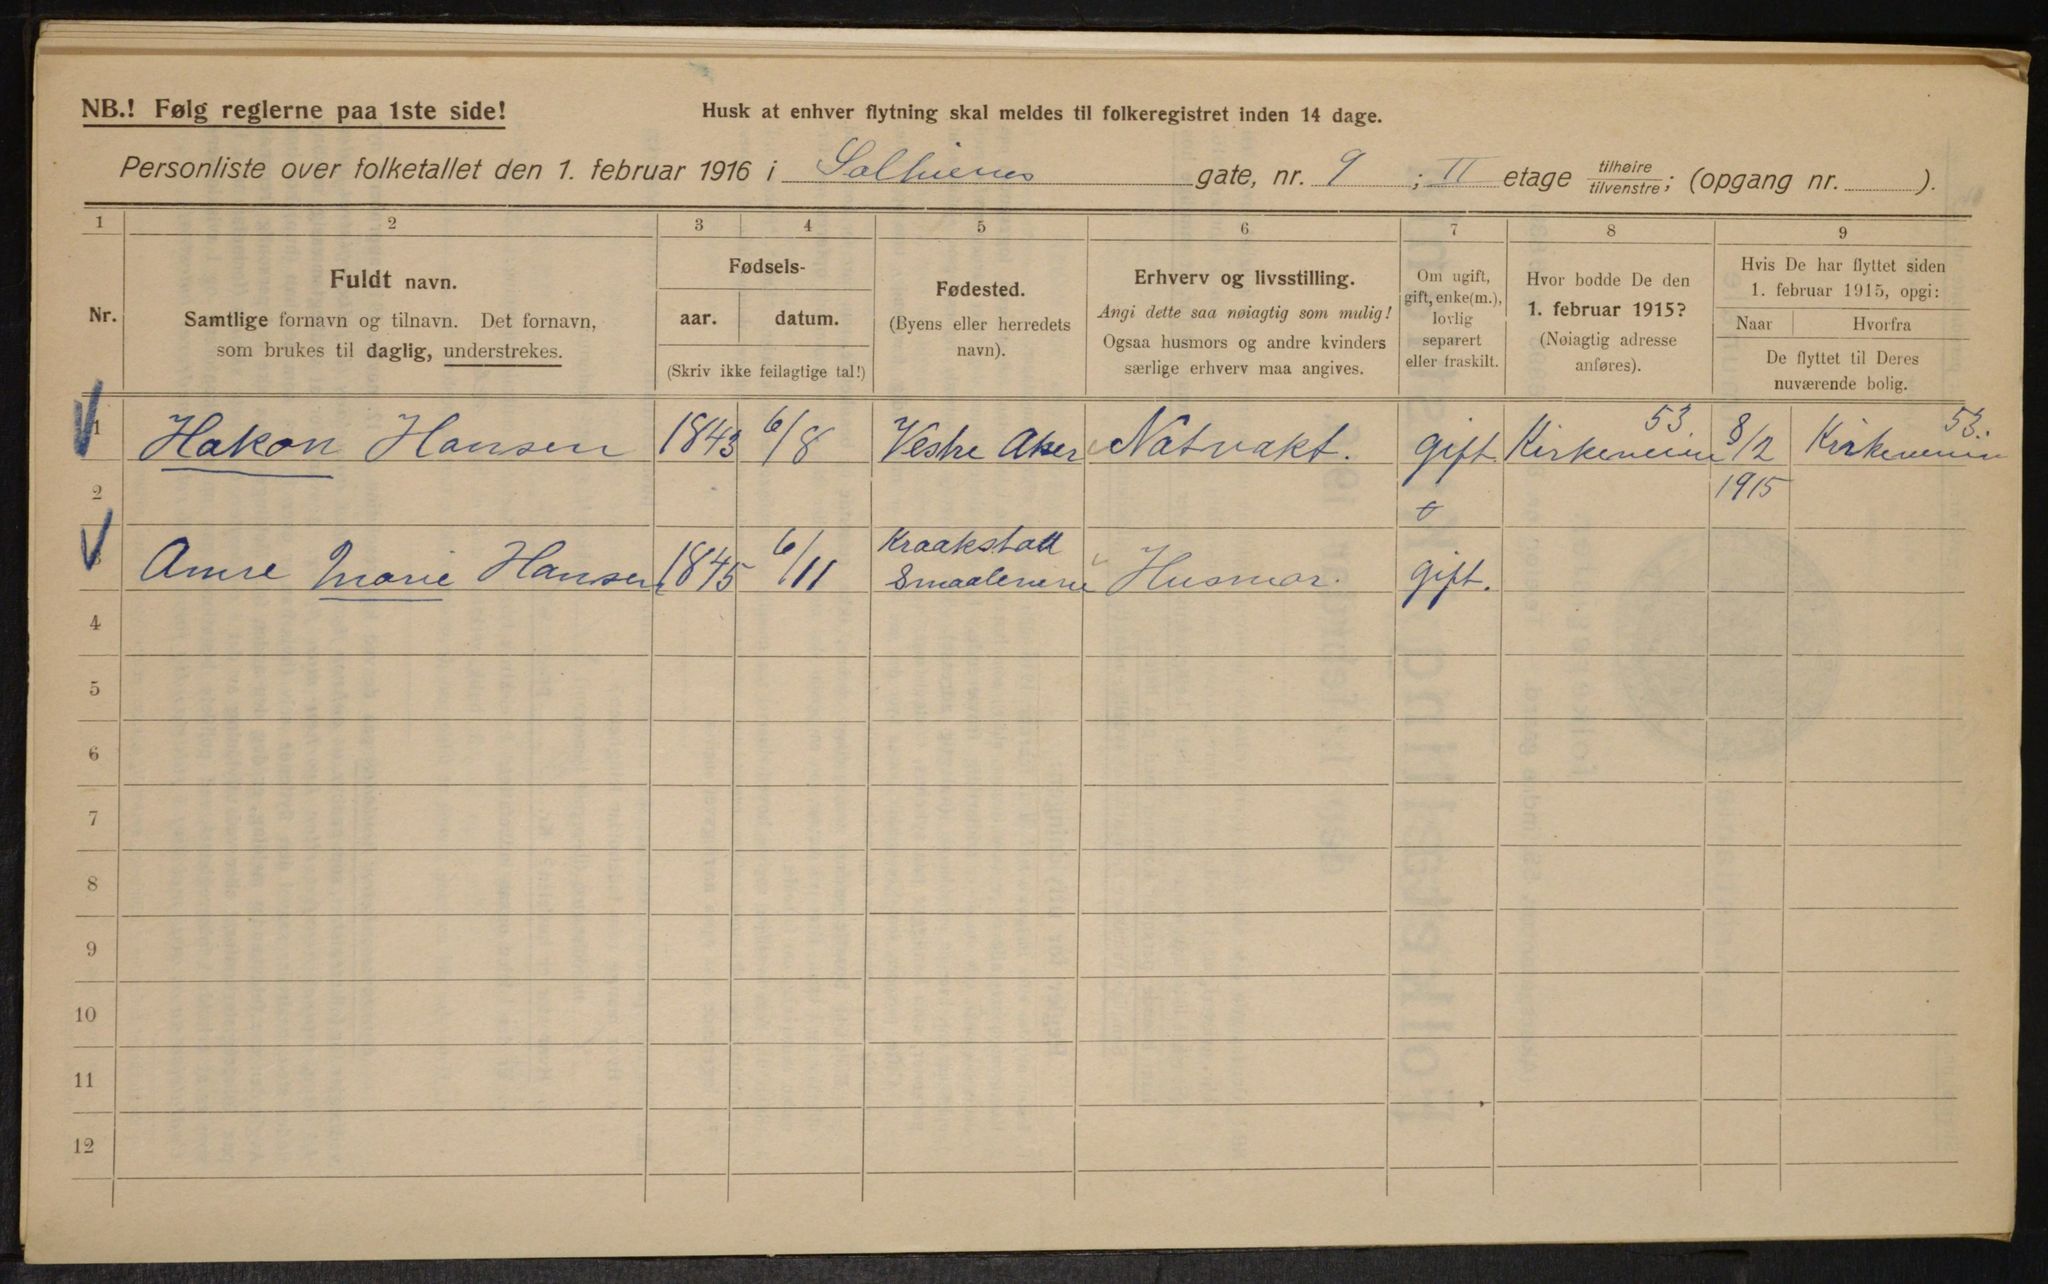 NB.! Følg reglerne paa 1ste side!
Husk at enhver flytning skal meldes til folkeregistret inden 14 dage.
Personliste over folketallet den 1. februar 1916 i gate, nr. 9 ; II etage tilhøire / tilvenstre; (opgang nr. ).
1 2 3 4 5 6 7 8 9
Nr.
Fuldt navn.
Samtlige fornavn og tilnavn. Det fornavn,
som brukes til daglig, understrekes.
Fødsels-
aar. datum.
(Skriv ikke feilagtige tal!)
Fødested.
(Byens eller herredets
navn).
Erhverv og livsstilling.
Angi dette saa nøiagtig som mulig!
Ogsaa husmors og andre kvinders
særlige erhverv maa angives.
Om ugift,
gift, enke(m.),
lovlig
separert
eller fraskilt.
Hvor bodde De den
1. februar 1915?
(Nøiagtig adresse
anføres).
Hvis De har flyttet siden
1. februar 1915, opgi:
Naar Hvorfra
De flyttet til Deres
nuværende bolig.
1 Hakon Hansen 1843 6/8 Vestre Aker Natvakt. gift Kirkeveien 53 8/2 Kirkeveien 53.
2 1915
3 Anne Marie Hansen 1845 6/11 Kraakstad
Smaalenene Husmor. gift.
4
5
6
7
8
9
10
11
12